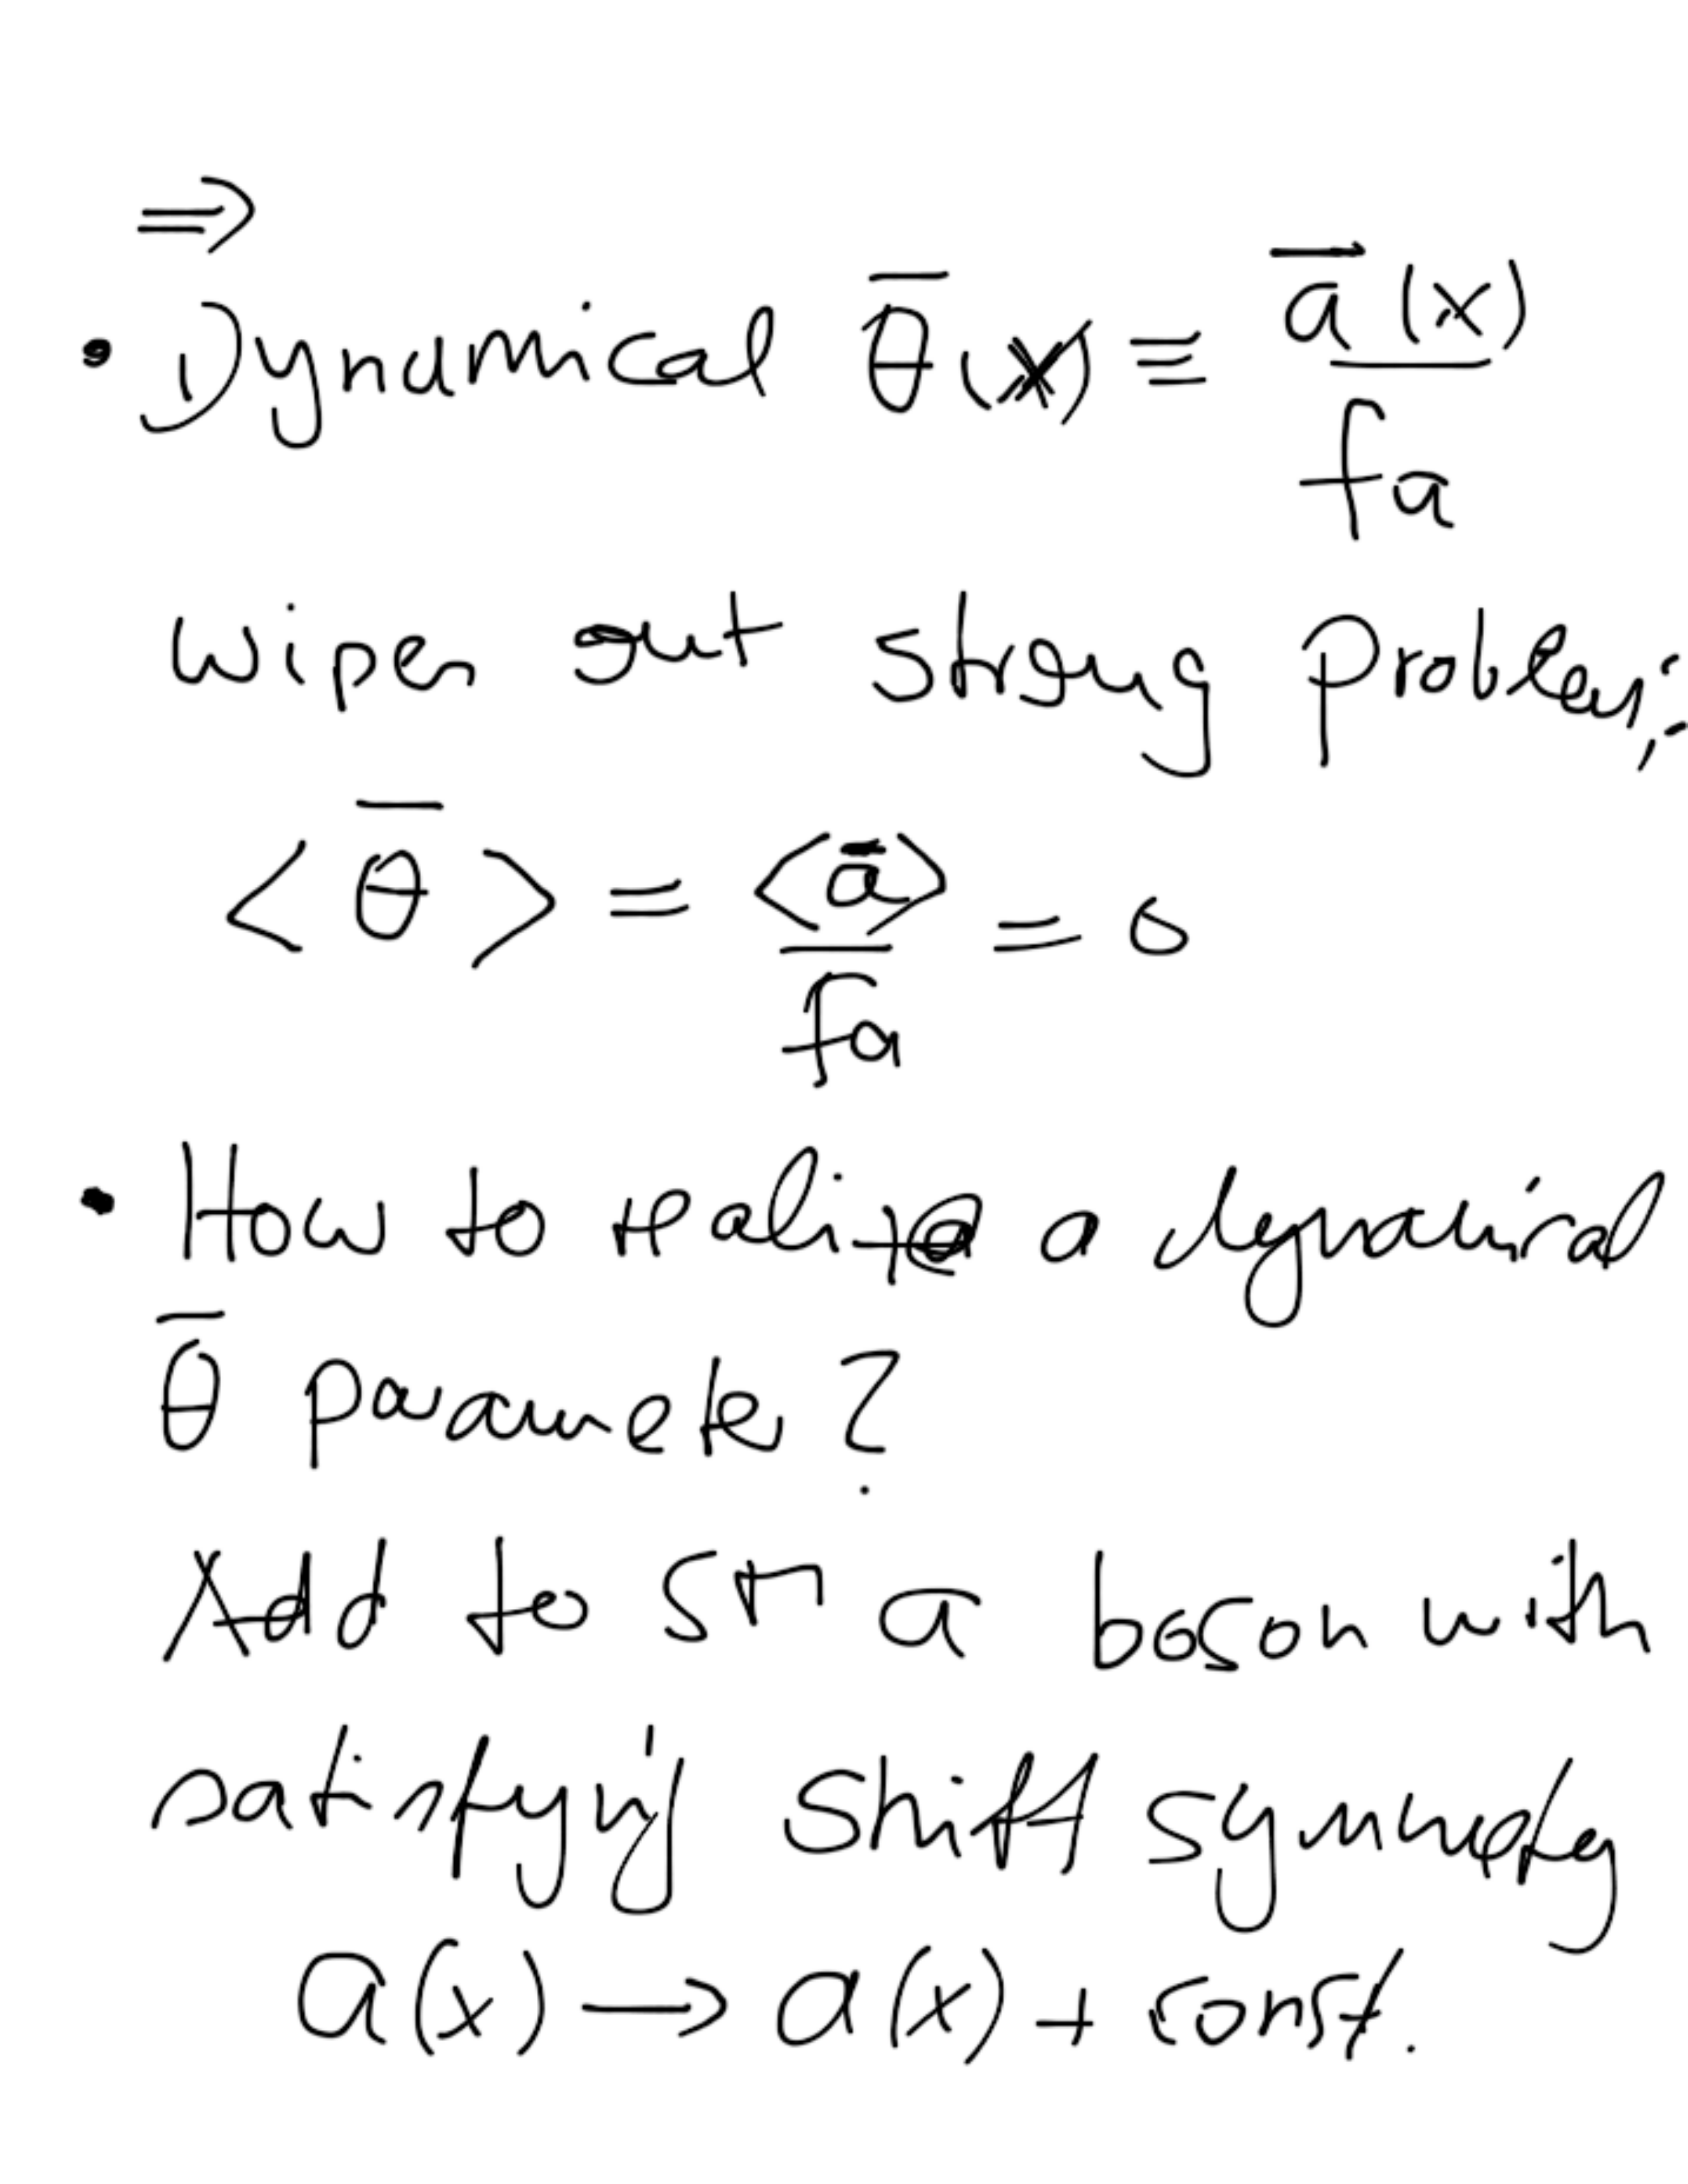 ⇒
• Dynamical θ̄(x) ≡ a̅(x)/fa
wipes out strong problem:
<θ̄> = <a̅>/fa = 0
• How to realize a dynamical
θ̄ parameter?
Add to SM a boson with
satisfying shift symmetry
a(x) → a(x) + const.